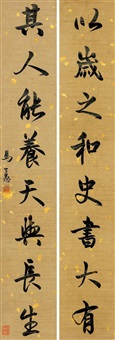 以歲之和史書大有
其人能養天與長生